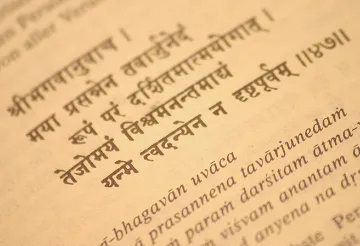 श्रीभगवानुवाच ।
मया प्रसन्नेन तवार्जुनेदं
रूपं परं दर्शितमात्मयोगात् ।
तेजोमयं विश्वमनन्तमाद्यं
यन्मे त्वदन्येन न दृष्टपूर्वम् ॥४७॥
-bhagavān uvāca
prasannena tavārjunedaṁ
paraṁ darśitam ātma-
viśvam anantam
anyena na